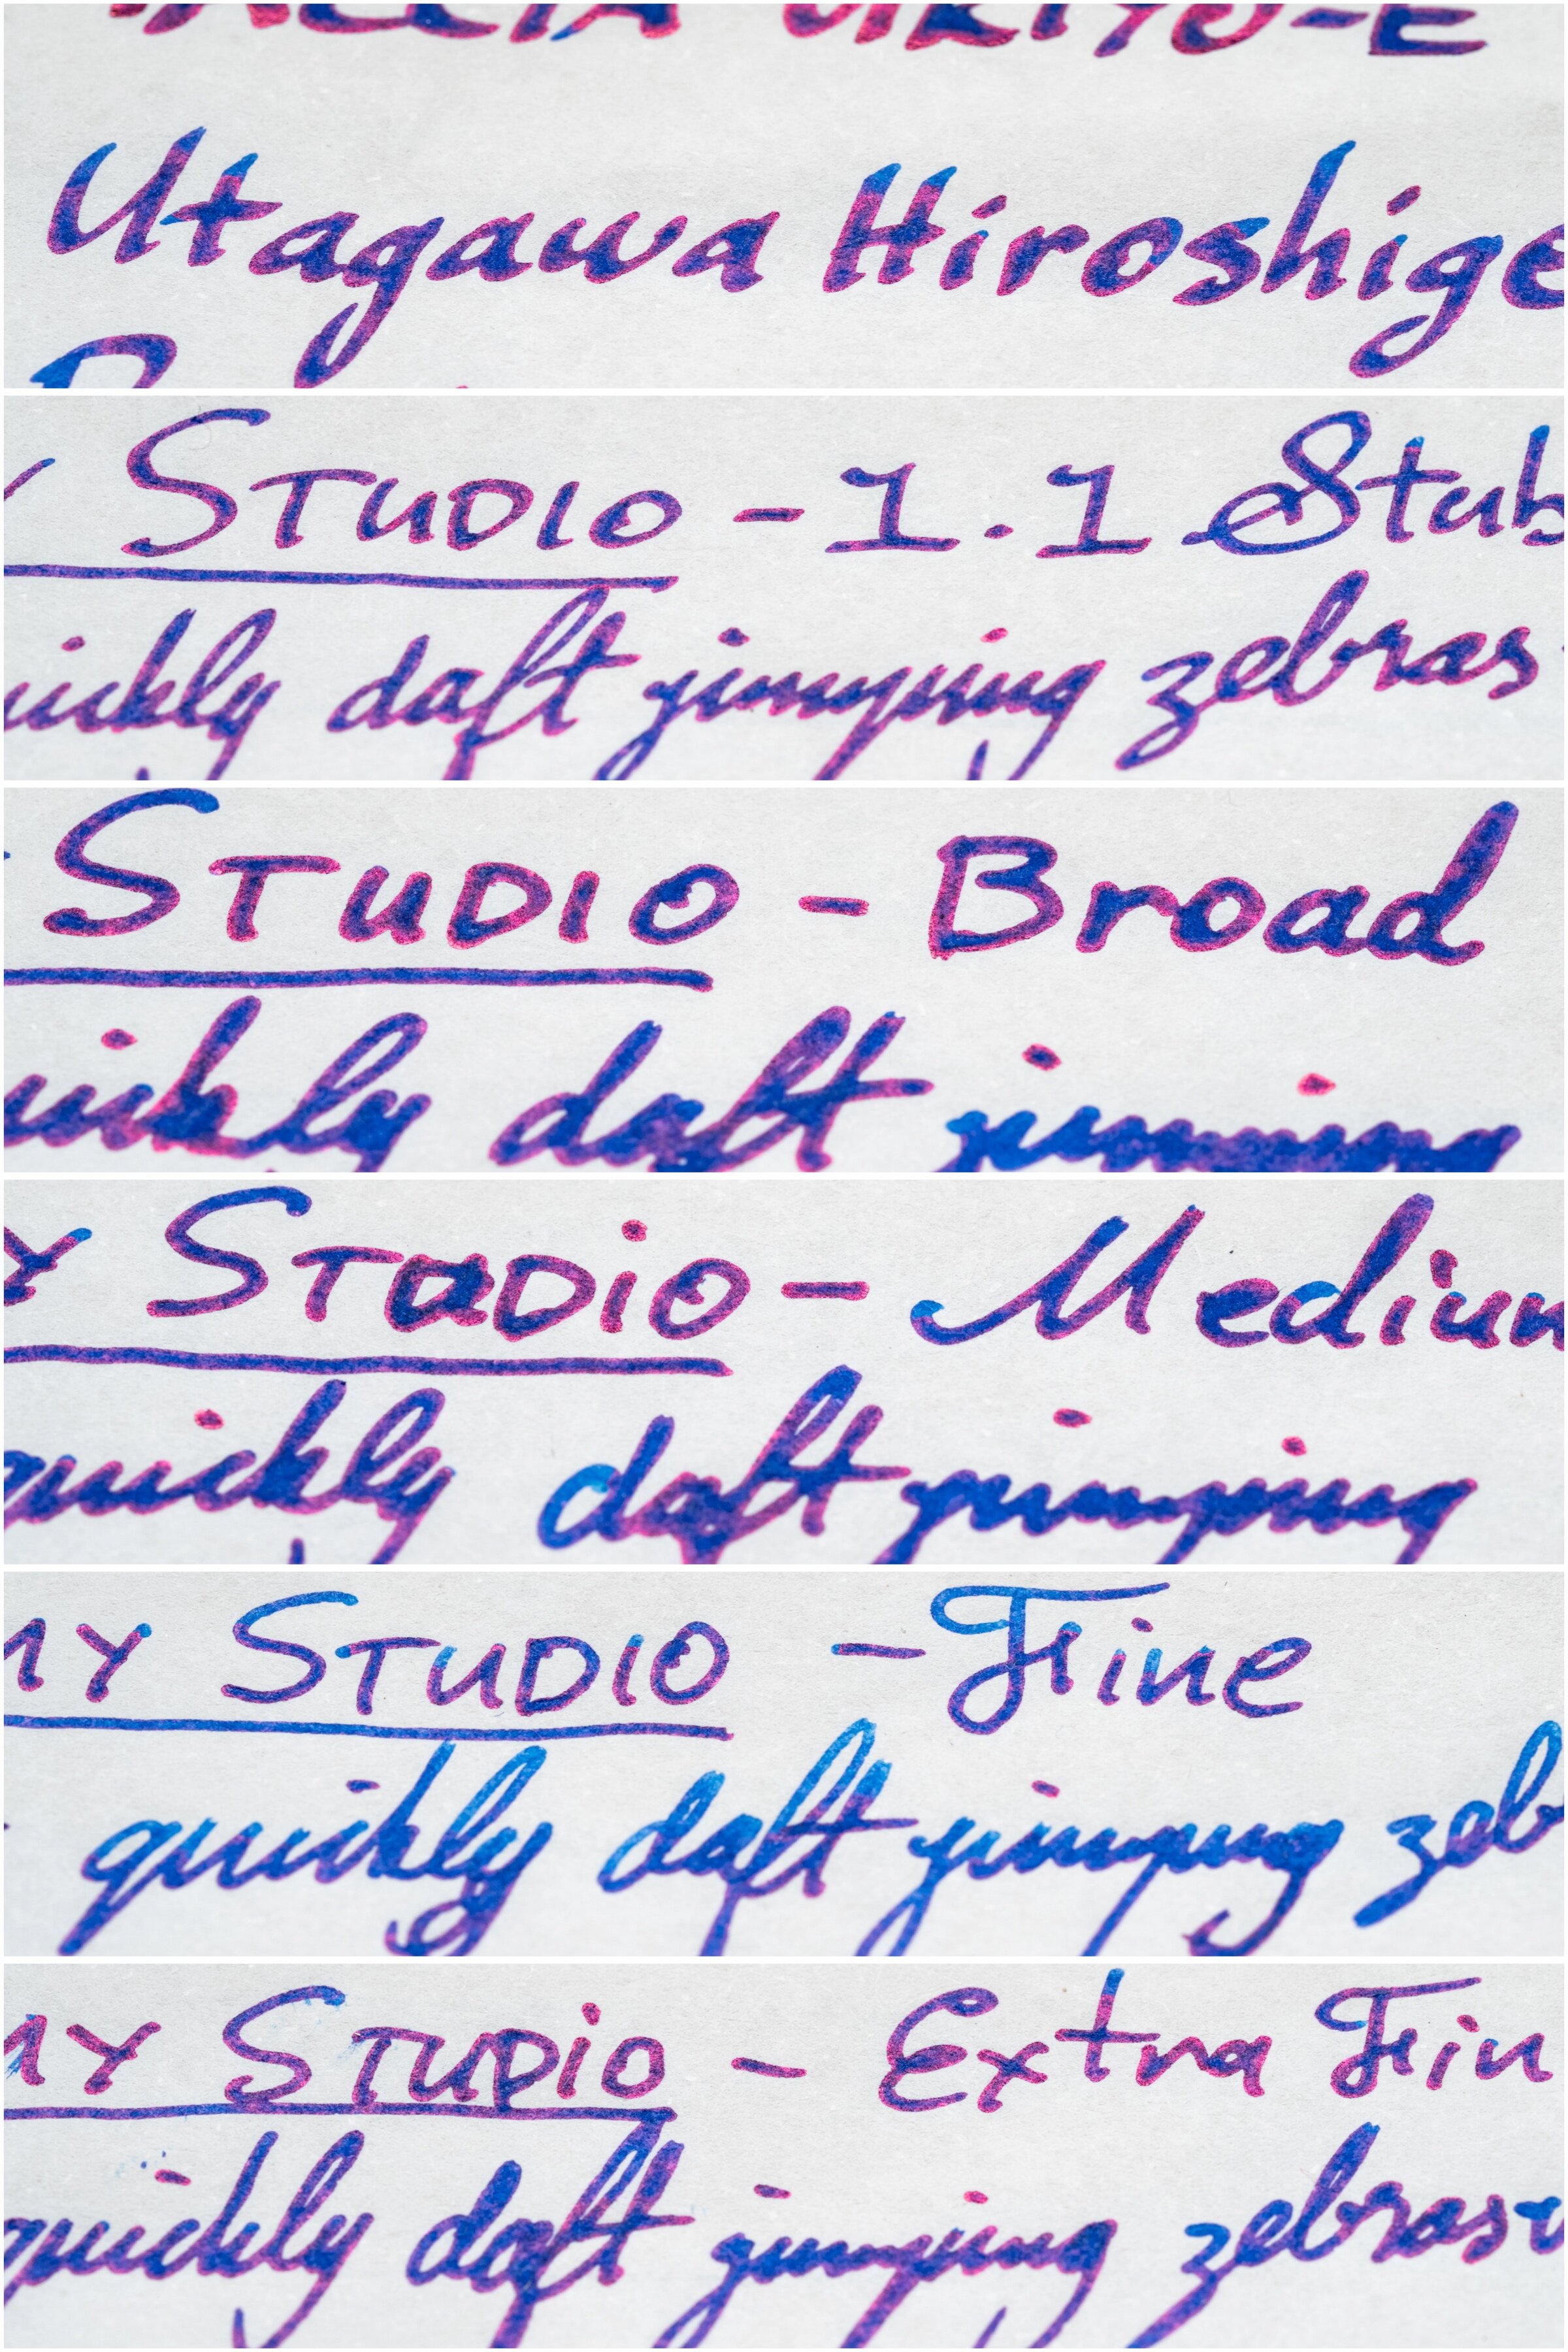 UKIYO-E
Utagawa Hiroshige
STUDIO - 1.1 Stub
uickly daft jumping zebras
STUDIO - Broad
uickly daft jumping
STUDIO - Medium
quickly daft jumping
MY STUDIO - Fine
quickly daft jumping zeb
MY STUDIO - Extra Fin
quickly daft jumping zebras